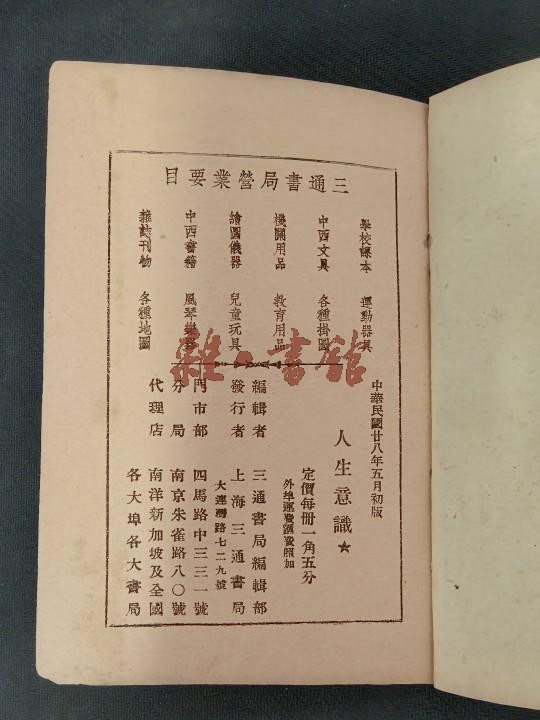 三通書局營業要目
學校課本 運動器具
中西文具 各種掛圖
機關用品 教育用品
繪圖儀器 兒童玩具
中西書籍 風琴樂器
雜誌刊物 各種地圖
雜·書館
中華民國廿八年五月初版
人生意識★
定價每冊一角五分
外埠運費匯費照加
編輯者 三通書局編輯部
發行者 上海三通書局
大連灣路七二九號
門市部 四馬路中三三一號
分局 南京朱雀路八〇號
代理店 南洋新加坡及全國
各大埠各大書局